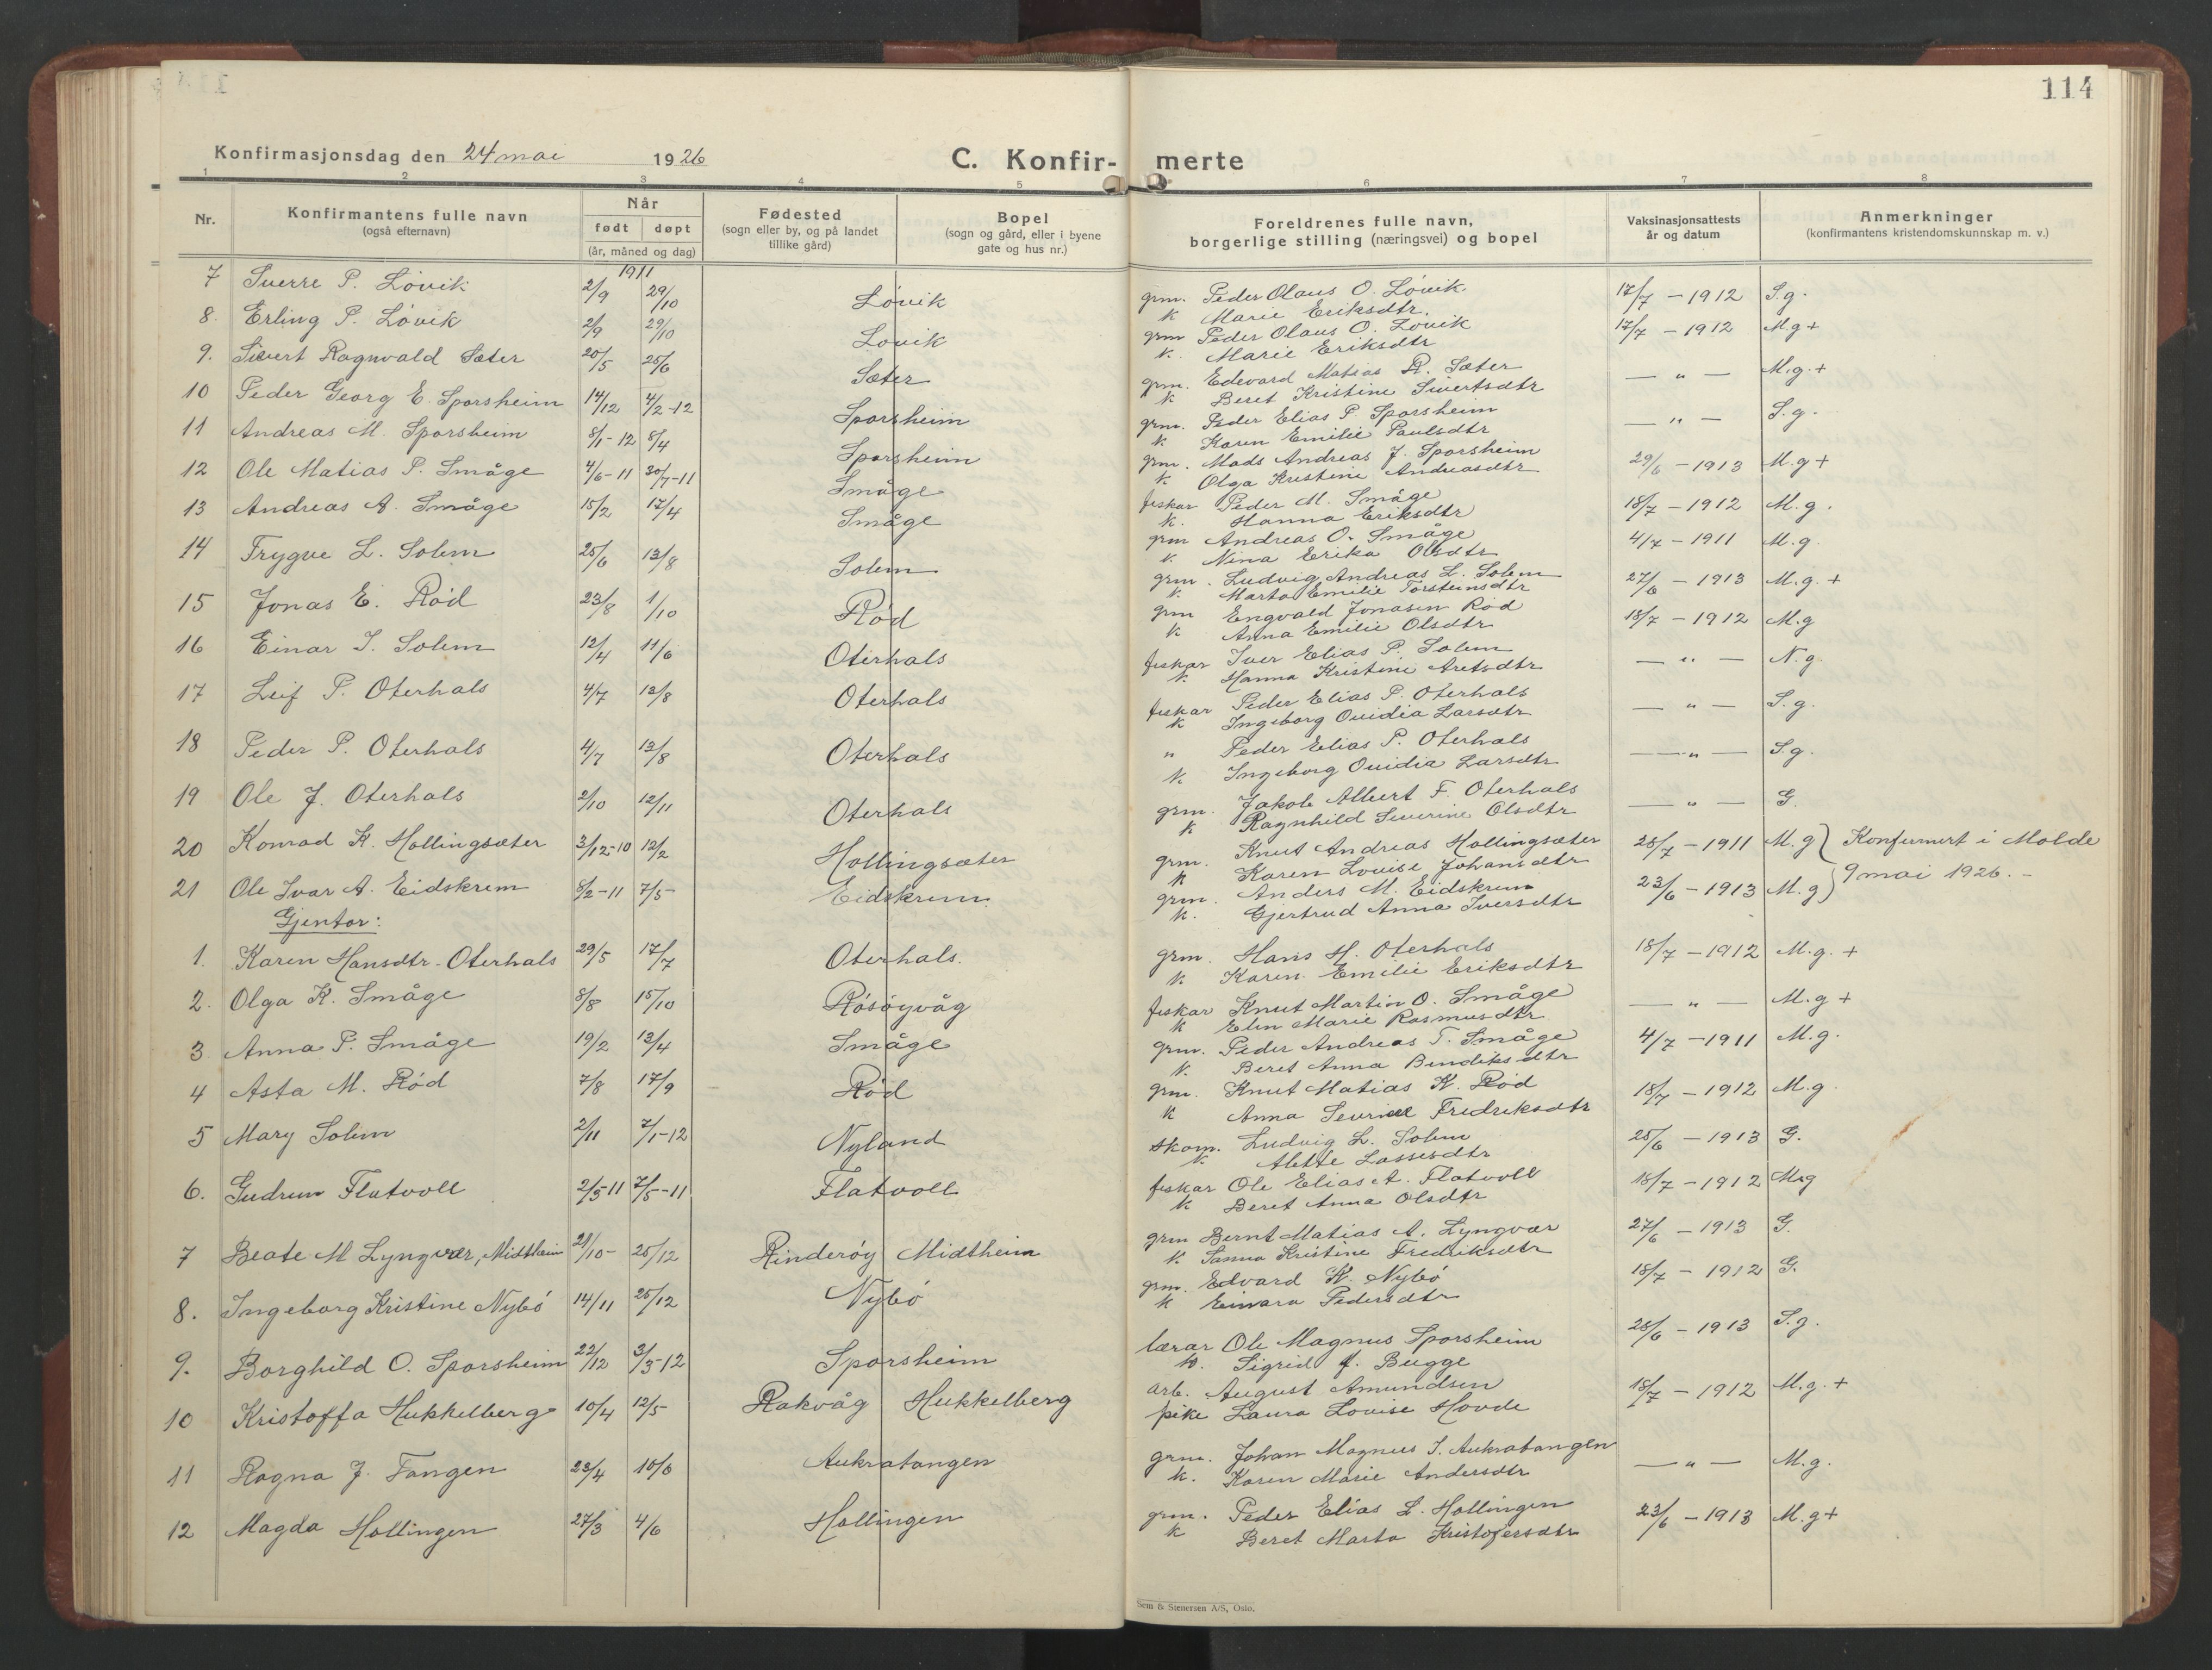 114
Konfirmasjonsdag den 24 mai 1926
C. Konfir- merte
1 2 3 4 5 6 7 8
Nr. Konfirmantens fulle navn (også efternavn) Når født døpt (år, måned og dag) Fødested (sogn eller by, og på landet tillike gård) Bopel (sogn og gård, eller i byene gate og hus nr.) Foreldrenes fulle navn, borgerlige stilling (næringsvei) og bopel Vaksinasjonsattests år og datum Anmerkninger (konfirmantens kristendomskunnskap m. v.)
1911
7 Sverre P. Lövik 2/9 29/10 Lövik grm. Peder Olaus O. Lövik 17/7 - 1912 S.g.
k Marie Eriksdtr.
8. Erling P. Lövik 2/9 29/10 Lövik grm Peder Olaus O. Lövik 17/7 - 1912 M.g +
k. Marie Eriksdtr
9. Sivert Ragnvald Sæter 20/5 25/6 Sæter grm. Edevard Matias R. Sæter — " — M.g. +
k Beret Kristine Sivertsdtr
10 Peder Georg E. Sporsheim 14/12 4/2-12 Sporsheim grm. Peder Elias P. Sporsheim — " — S.g.
k. Karen Emilie Paulsdtr
11 Andreas M. Sporsheim 8/1-12 8/4 Sporsheim grm. Mads Andreas J. Sporsheim 29/6 - 1913 M.g +
k. Olga Kristine Andreasdtr
12 Ole Matias P. Småge 4/6-11 30/7-11 Småge fiskar Peder M. Småge 18/7 - 1912 M.g.
k. Hanna Eriksdtr
13 Andreas A. Småge 15/2 17/4 Småge grm Andreas O. Småge 4/7 - 1911 M.g.
k. Nina Erika Olsdtr
14 Trygve L. Solem 25/6 13/8 Solem grm. Ludvig Andreas L. Solem 27/6 - 1913 M.g. +
k. Marta Emilie Torsteinsdtr
15 Jonas E. Röd 23/8 1/10 Röd grm Engvald Jonasen Röd 18/7 - 1912 M.g
k. Anna Emilie Olsdtr
16 Einar I. Solem 12/4 11/6 Oterhals fiskar Iver Elias P. Solem — " — N.g.
k. Hanna Kristine Aretsdtr
17 Leif P. Oterhals 4/7 13/8 Oterhals fiskar Peder Elias P. Oterhals — " — S.g.
k Ingeborg Ovidia Larsdtr
18 Peder P. Oterhals 4/7 13/8 Oterhals " Peder Elias P. Oterhals — " — S.g.
k Ingeborg Ovidia Larsdtr
19 Ole J. Oterhals 2/10 12/11 Oterhals grm. Jakob Albert F. Oterhals — " — G.
k Ragnhild Severine Olsdtr
20 Konrad K. Hollingsæter 3/12-10 12/2 Hollingsæter grm. Knut Andreas Hollingsæter 28/7 - 1911 M.g } Konfirmert i Molde
k Karen Lovise Johansdtr
21 Ole Ivar A. Eidskrem 8/2-11 7/5- Eidskrem grm. Anders M. Eidskrem 23/6 - 1913 M.g } 9 mai 1926. -
k. Gjertrud Anna Iversdtr
Gjentor:
1. Karen Hansdtr. Oterhals 29/5 17/7 Oterhals. grm. Hans H. Oterhals 18/7 - 1912 M.g. +
k. Karen Emilie Eriksdtr
2. Olga K. Småge 8/8 15/10 Rösöyvåg fiskar Knut Martin O. Småge — " — M.g +
k Elen Marie Rasmusdtr
3. Anna P. Småge 19/2 13/4 Småge grm. Peder Andreas T. Småge 4/7 - 1911 M.g.
k. Beret Anna Bendiksdtr
4 Asta M. Röd 7/8 17/9 Röd grm. Knut Matias K. Röd 18/7 - 1912 M.g.
k Anna Fredriksdtr
5 Mary Solem 2/11 7/1-12 Nyland skom. Ludvig L. Solem 25/6 - 1913 G.
k. Alette Lassesdtr
6. Gudrun Flatvoll 2/3-11 7/5-11 Flatvoll fiskar Ole Elias A. Flatvoll 18/7 - 1912 M.g
k Beret Anna Olsdtr
7 Beate M Lyngvær, Midtheim 21/10- 25/12 Rinderöy Midtheim grm Bernt Matias A. Lyngvær 27/6 - 1913 G.
k. Sanna Kristine Fredriksdtr
8. Ingeborg Kristine Nybö 14/11 25/12 Nybö grm. Edvard K. Nybö 18/7 - 1912 G.
k Einara Pedersdtr
9. Borghild O. Sporsheim 22/12 3/3-12 Sporsheim lærar Ole Magnus Sporsheim 28/6 - 1913 S.g.
k. Sigrid J. Bugge
10 Kristoffa Hukkelberg 10/4 12/5- Rakvåg Hukkelberg arb. August Amundsen 18/7 - 1912 M.g. +
pike Laura Lovise Hovde
11 Ragna J. Tangen 23/4 10/6 Aukratangen grm. Johan Magnus I. Aukratangen — " — M.g.
k. Karen Marie Andersdtr
12 Magda Hollingen 27/3 4/6 Hollingen grm. Peder Elias L. Hollingen 23/6 - 1913 M.g +
k Beret Marta Kristofersdtr
Sem & Stenersen A/S, Oslo.